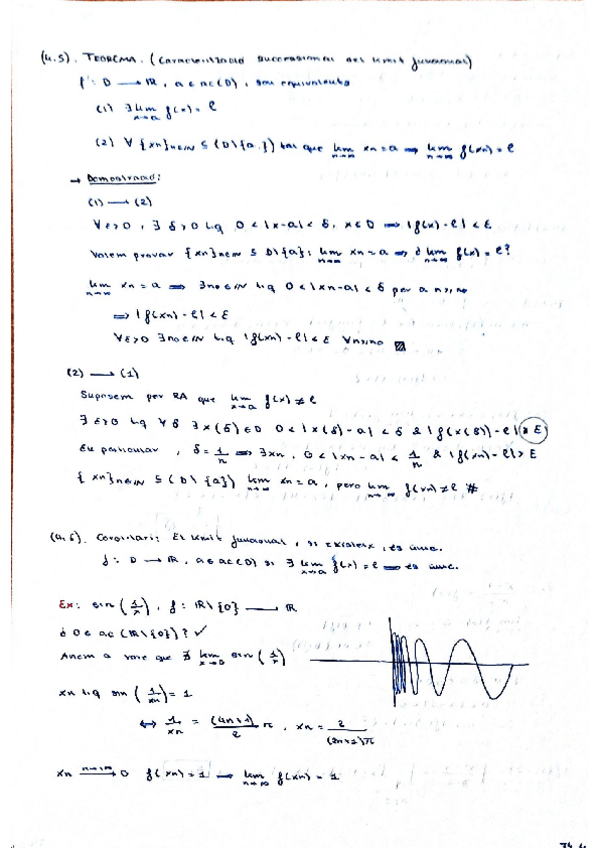 (4.5). TEOREMA. (Caracterització successional del límit funcional)
f: D → ℝ, a ∈ ac(D), són equivalents
(1) ∃ lim x→a f(x) = l
(2) ∀ {xn}n∈ℕ ⊆ (D\{a}) tal que lim n→∞ xn = a ⟹ lim n→∞ f(xn) = l
→ Demostració:
(1) → (2)
∀ε>0, ∃ δ>0 t.q. 0 < |x-a| < δ, x∈D ⟹ |f(x) - l| < ε
Volem provar {xn}n∈ℕ ⊆ D\{a}: lim n→∞ xn = a ⟹ ¿ lim n→∞ f(xn) = l?
lim n→∞ xn = a ⟹ ∃n0∈ℕ t.q. 0 < |xn-a| < δ per a n≥n0
⟹ |f(xn) - l| < ε
∀ε>0 ∃n0∈ℕ t.q. |f(xn) - l| < ε ∀n≥n0 ▨
(2) → (1)
Suposem per RA que lim x→a f(x) ≠ l
∃ ε>0 t.q. ∀δ ∃x(δ)∈D 0 < |x(δ) - a| < δ & |f(x(δ)) - l| ≥ ε
En particular, δ = 1/n ⟹ ∃xn, 0 < |xn - a| < 1/n & |f(xn) - l| > ε
{xn}n∈ℕ ⊆ (D\{a}) lim n→∞ xn = a, però lim n→∞ f(xn) ≠ l #
(4.6). Corol·lari: El límit funcional, si existeix, és únic.
f: D → ℝ, a∈ac(D) si ∃ lim x→a f(x) = l ⟹ és únic.
Ex: sin(1/x), f: ℝ\{0} → ℝ
¿0 ∈ ac(ℝ\{0})? ✓
Anem a vore que ∄ lim x→0 sin(1/x)
xn t.q. sin(1/xn) = 1
⟺ 1/xn = (4n+1)/2 π, xn = 2/(2n+1)π
xn n→∞ → 0 f(xn) = 1 → lim n→∞ f(xn) = 1